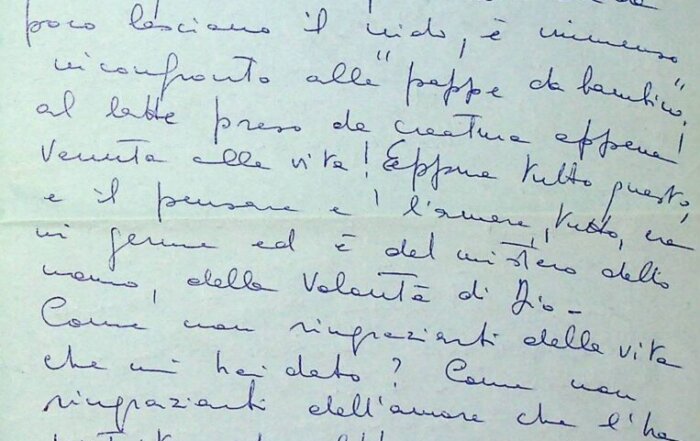 poco lasciano il nido, è immenso
in confronto alle "pappe da bambino",
al latte preso da creatura appena
venuta alla vita! Eppure tutto questo,
e il pensare e l'amare, tutto, era
in germe ed è del mistero dello
uomo, della Volontà di Dio -
Come non ringraziarti della vita
che mi hai dato? Come non
ringraziarti dell'amore che l'ha